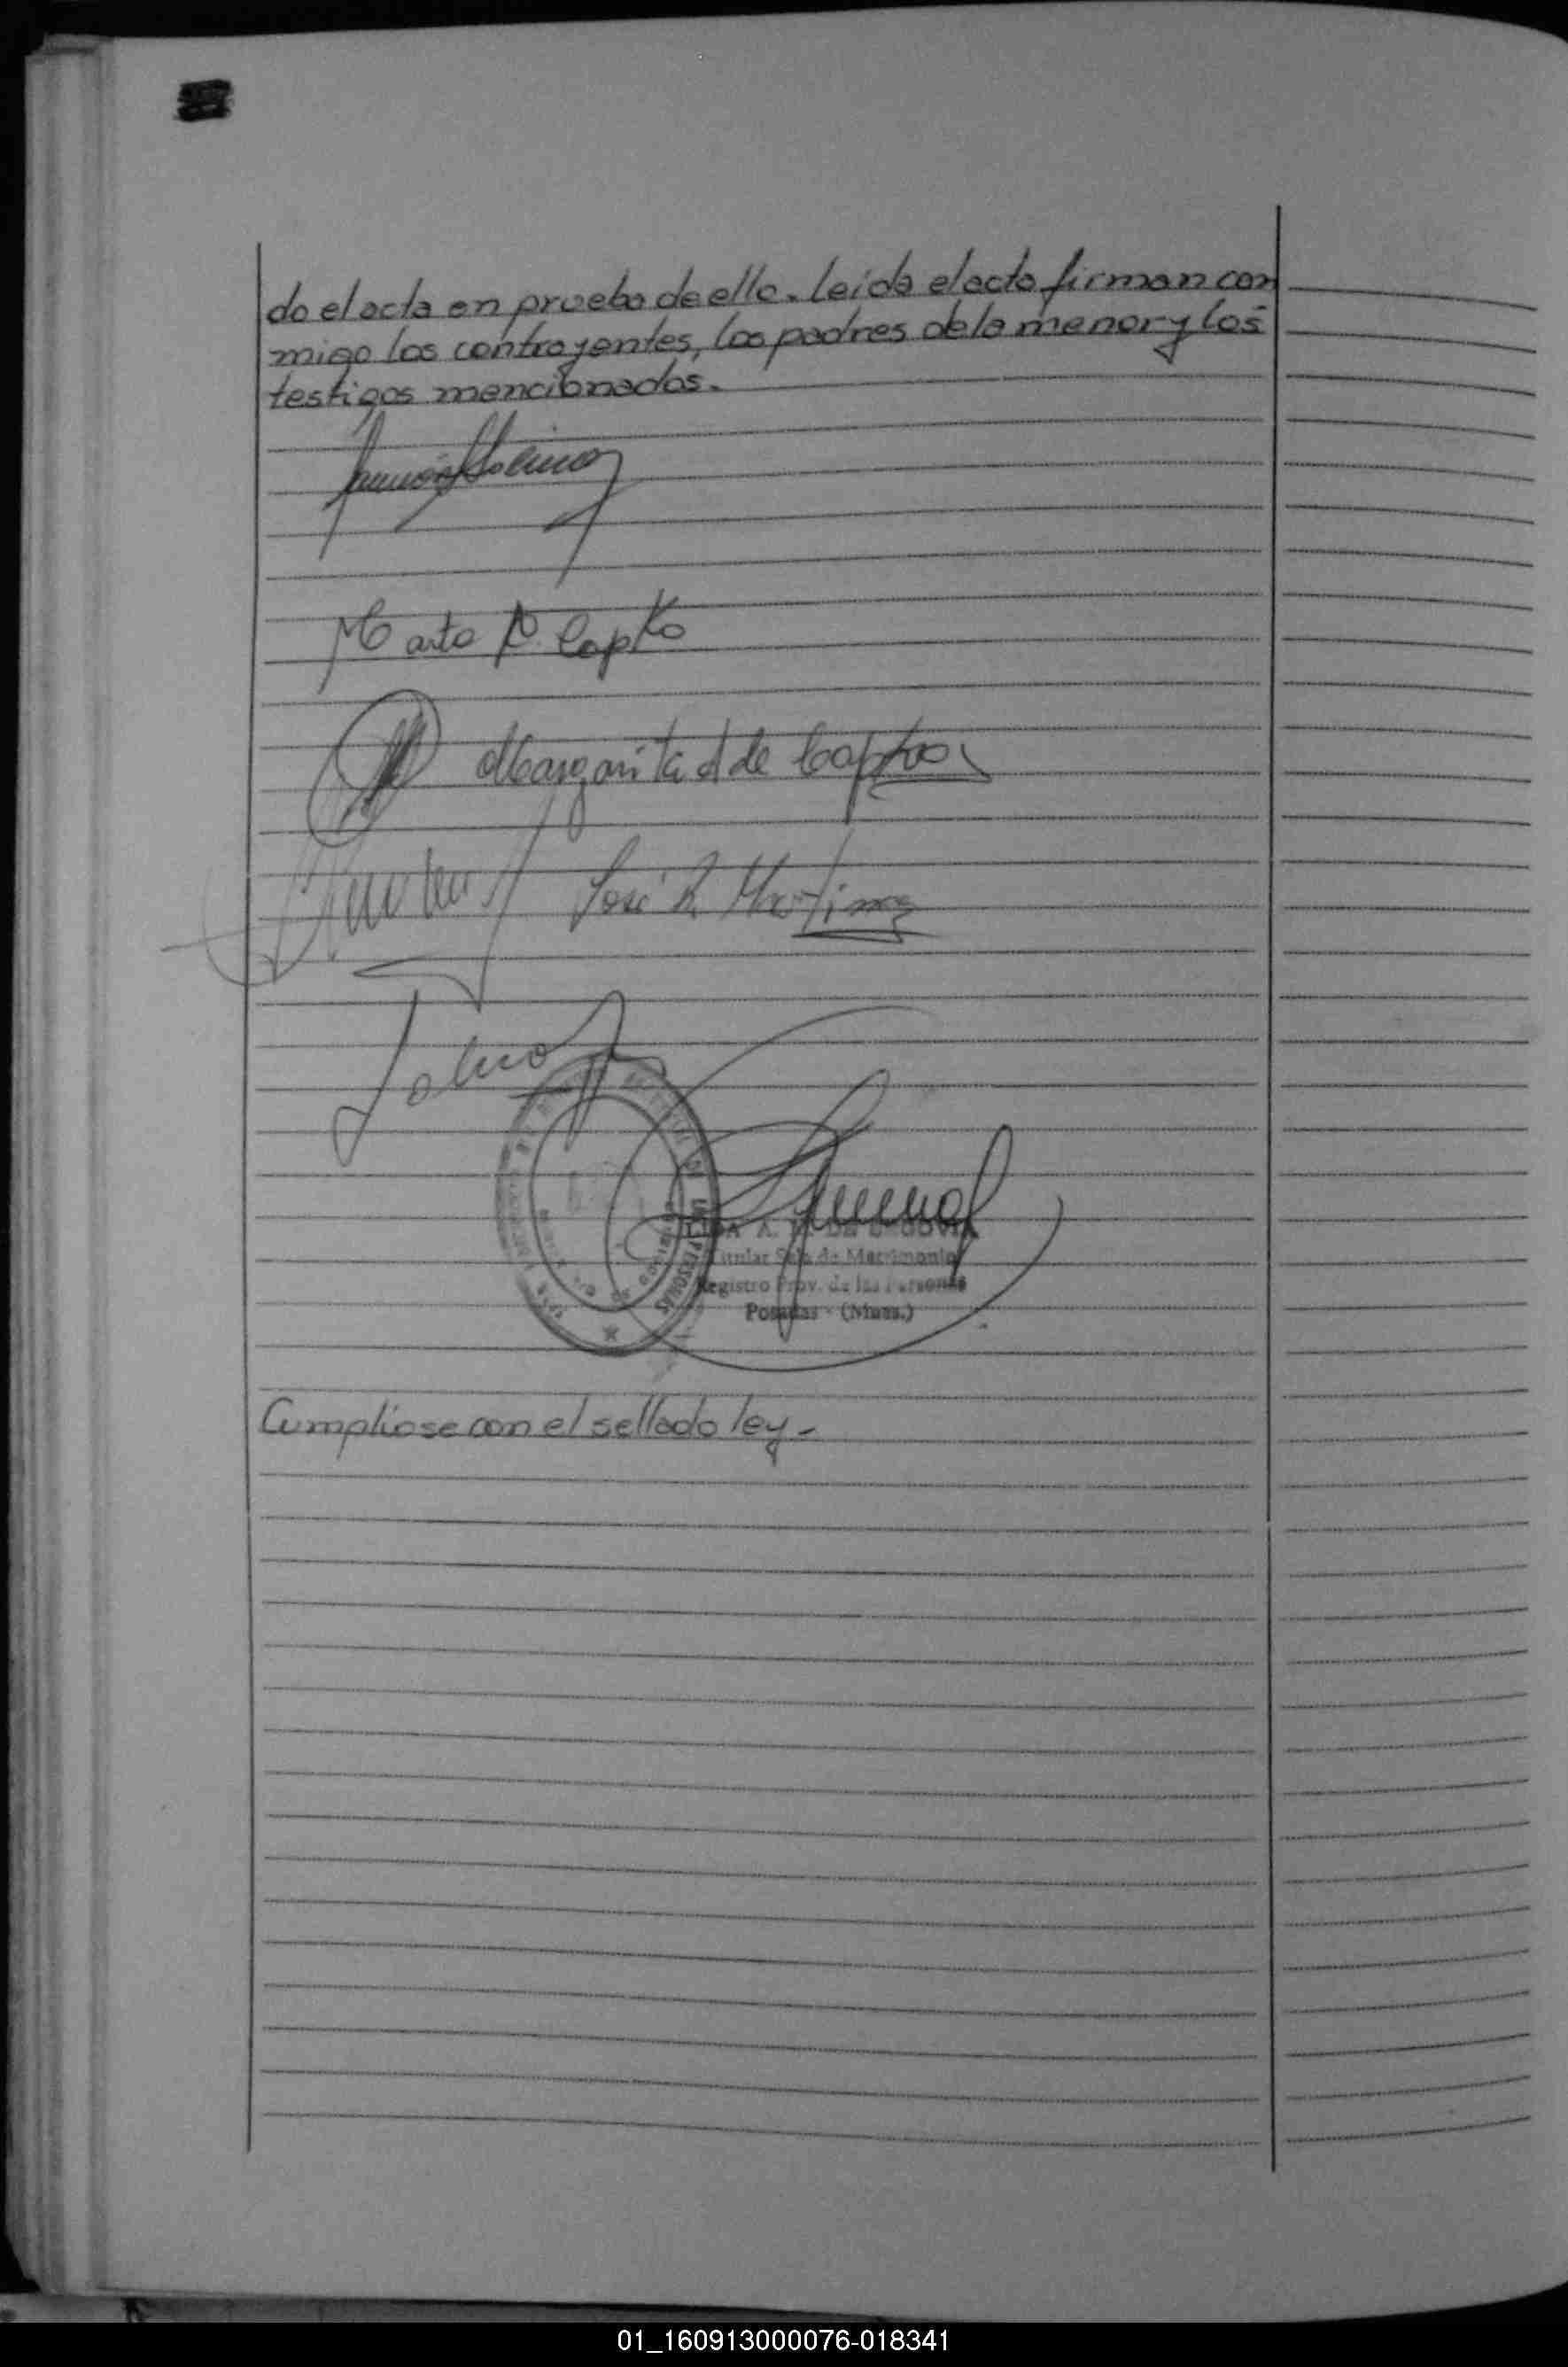 do el acta en prueba de ello. leída el acta firman con
migo los contrayentes, los padres de la menor y los
testigos mencionados.
Marta R. Capko
Margarita A de Capko
José R Martinez
A. DE SEGOVIA
Titular Sala de Matrimonio
Registro Prov. de las Personas
Posadas - (Mnes.)
Cumpliose con el sellado ley.
01_160913000076-018341